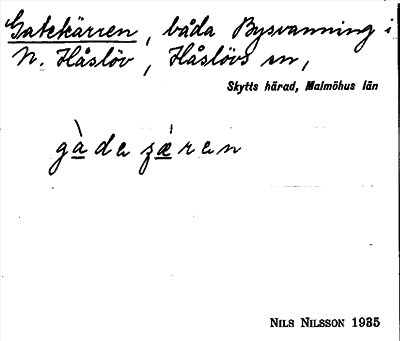 Gatekärren, båda Bysvanning i
N. Håslöv, Håslövs sn,
Skytts härad, Malmöhus län
gàda ʒæ̀ran
NILS NILSSON 1935